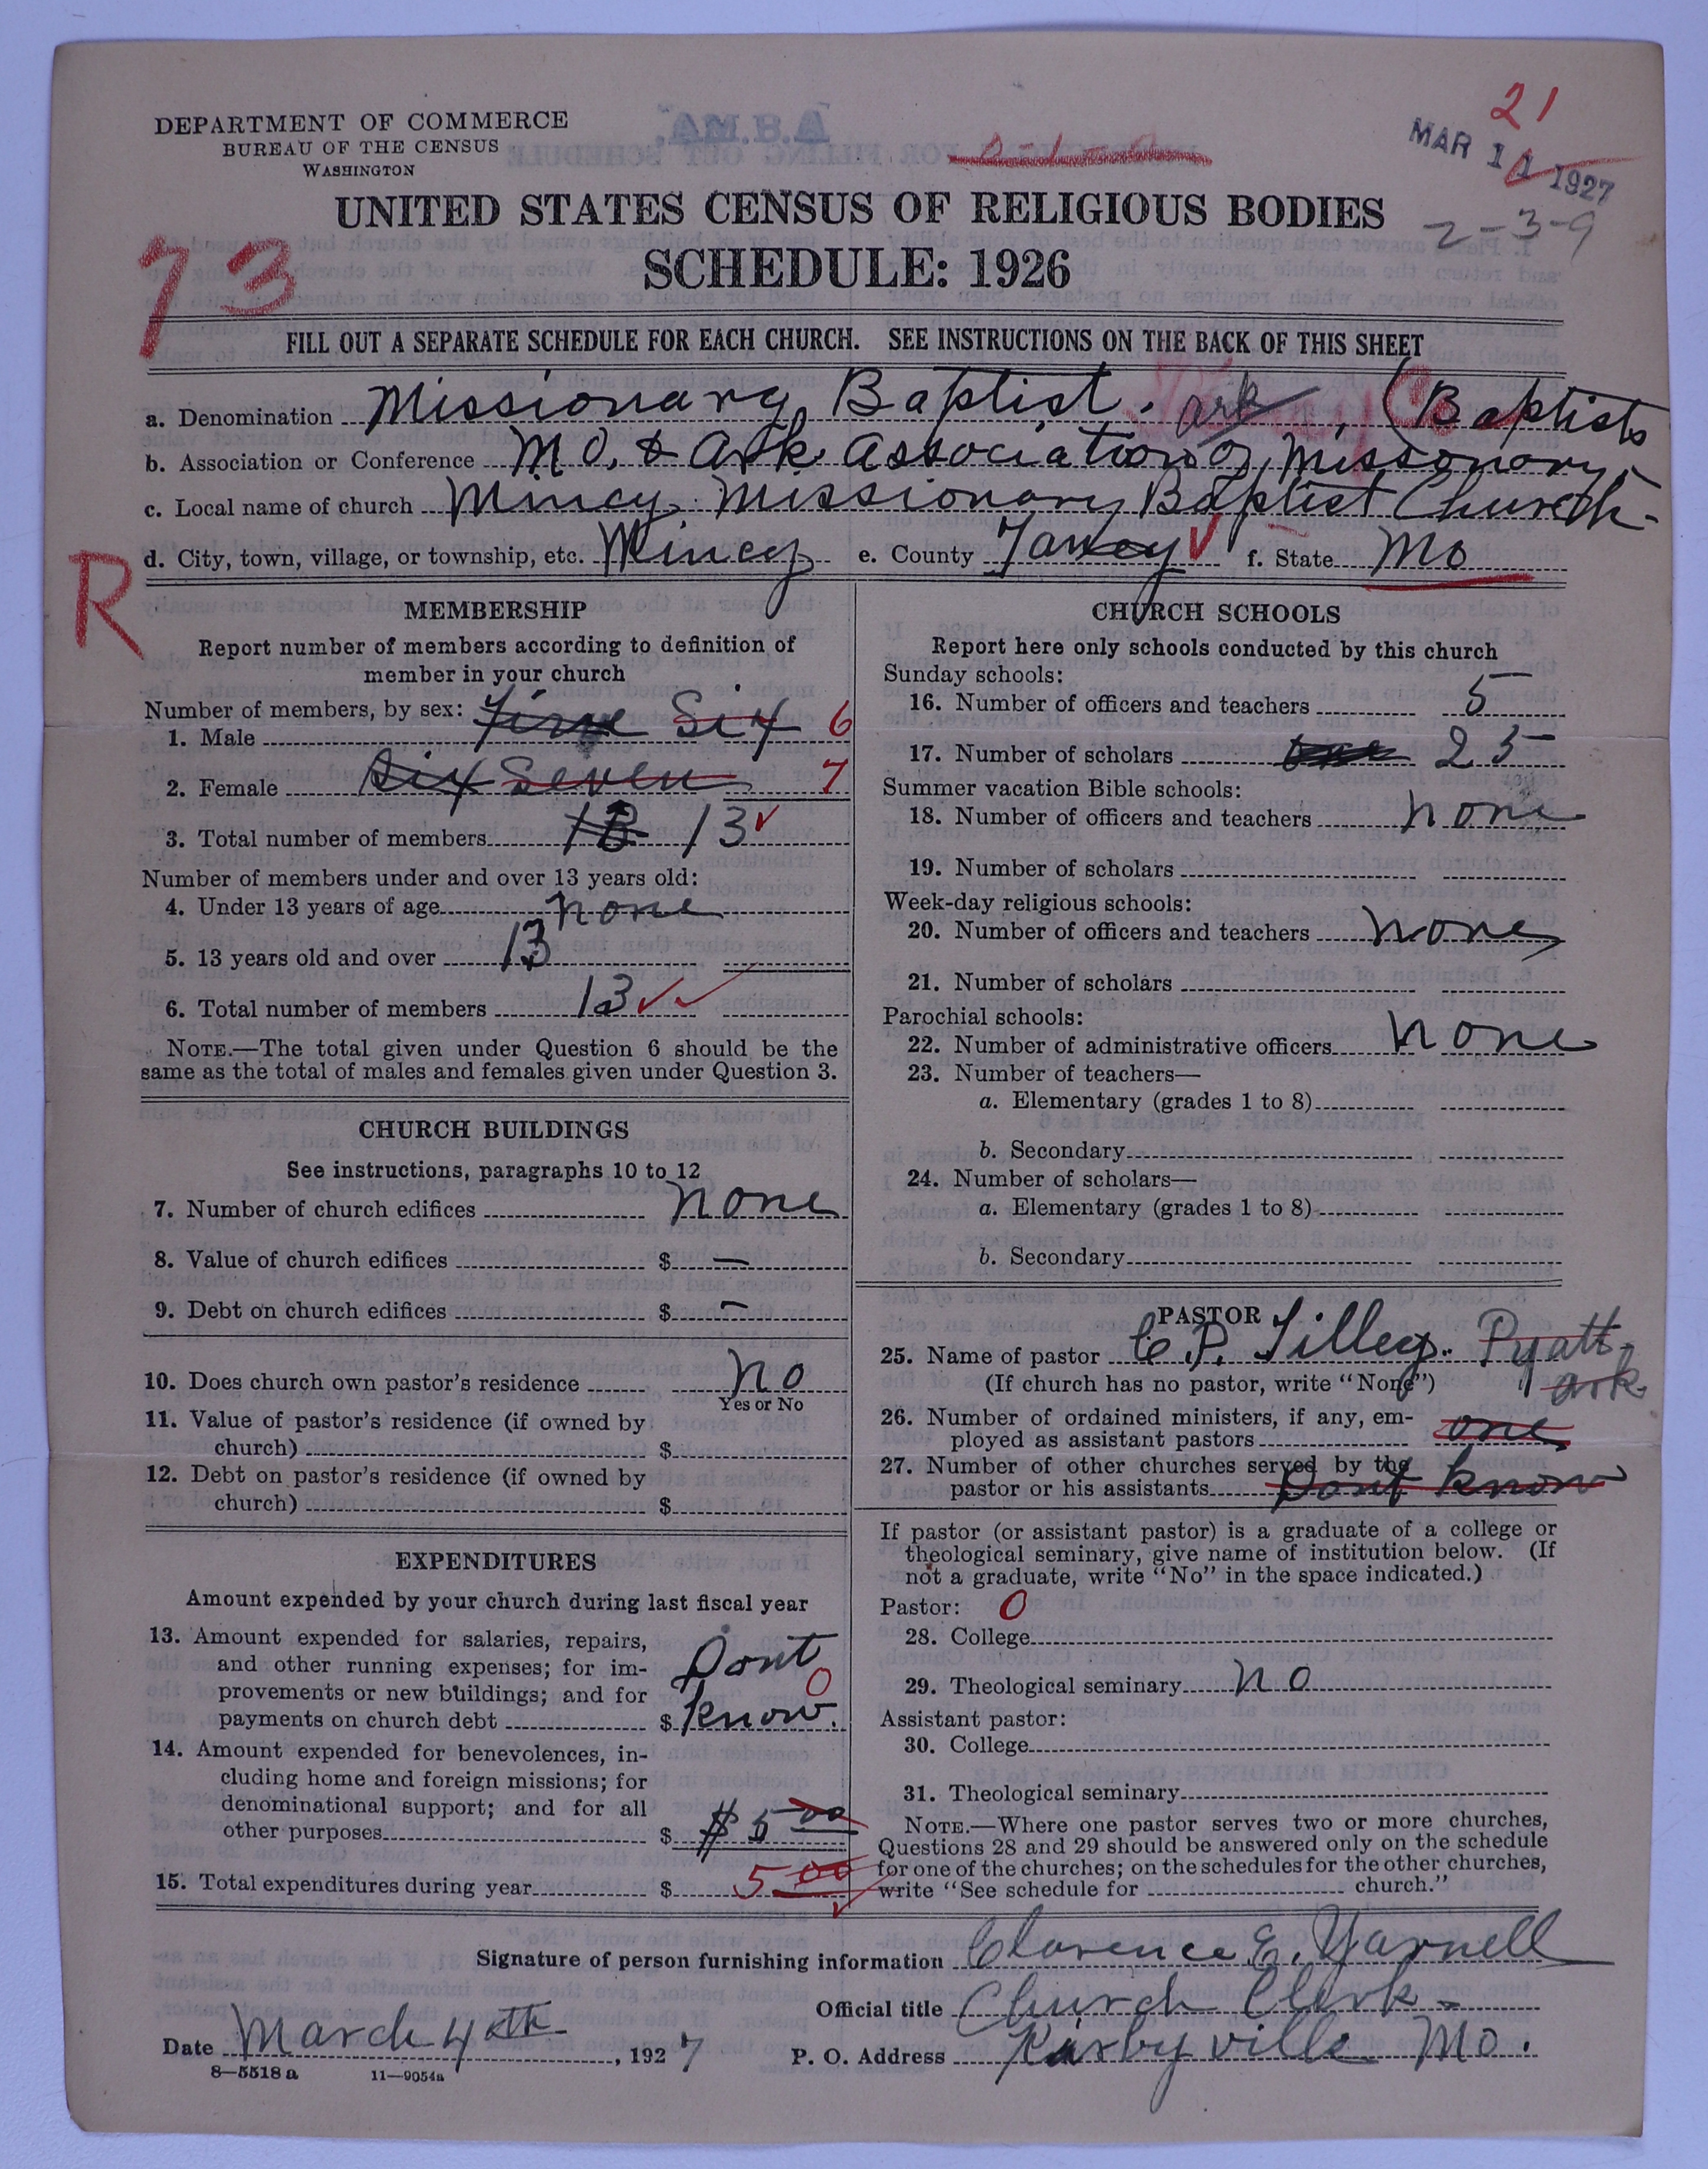 21
DEPARTMENT OF COMMERCE
BUREAU OF THE CENSUS
WASHINGTON
MAR 1 1927
UNITED STATES CENSUS OF RELIGIOUS BODIES
2-3-9
SCHEDULE: 1926
73
FILL OUT A SEPARATE SCHEDULE FOR EACH CHURCH. SEE INSTRUCTIONS ON THE BACK OF THIS SHEET
a. Denomination Missionary Baptist. Ark. (Baptists
b. Association or Conference MO. & Ark Association of Missonary
c. Local name of church Mincy. Missionary Baptist Church.
d. City, town, village, or township, etc. Mincy e. County Taney f. State Mo
R
MEMBERSHIP
Report number of members according to definition of
member in your church
Number of members, by sex:
1. Male Five Six 6
2. Female Six Seven 7
3. Total number of members 13 13
Number of members under and over 13 years old:
4. Under 13 years of age none
5. 13 years old and over 13
6. Total number of members 13
NOTE.—The total given under Question 6 should be the
same as the total of males and females given under Question 3.
CHURCH BUILDINGS
See instructions, paragraphs 10 to 12
7. Number of church edifices none
8. Value of church edifices $ —
9. Debt on church edifices $ –
10. Does church own pastor's residence no
Yes or No
11. Value of pastor's residence (if owned by
church) $
12. Debt on pastor's residence (if owned by
church) $
EXPENDITURES
Amount expended by your church during last fiscal year
13. Amount expended for salaries, repairs,
and other running expenses; for im-
provements or new buildings; and for
payments on church debt $ Dont know. 0
14. Amount expended for benevolences, in-
cluding home and foreign missions; for
denominational support; and for all
other purposes $ $5 00
15. Total expenditures during year $ 5 00
CHURCH SCHOOLS
Report here only schools conducted by this church
Sunday schools:
16. Number of officers and teachers 5
17. Number of scholars 25
Summer vacation Bible schools:
18. Number of officers and teachers none
19. Number of scholars
Week-day religious schools:
20. Number of officers and teachers none
21. Number of scholars
Parochial schools:
22. Number of administrative officers none
23. Number of teachers—
a. Elementary (grades 1 to 8)
b. Secondary
24. Number of scholars—
a. Elementary (grades 1 to 8)
b. Secondary
PASTOR
25. Name of pastor C. P. Tilley. Pyatt
(If church has no pastor, write "None") Ark.
26. Number of ordained ministers, if any, em-
ployed as assistant pastors one
27. Number of other churches served by the
pastor or his assistants Dont know
If pastor (or assistant pastor) is a graduate of a college or
theological seminary, give name of institution below. (If
not a graduate, write "No" in the space indicated.)
Pastor: 0
28. College
29. Theological seminary no
Assistant pastor:
30. College
31. Theological seminary
NOTE.—Where one pastor serves two or more churches,
Questions 28 and 29 should be answered only on the schedule
for one of the churches; on the schedules for the other churches,
write "See schedule for church."
Signature of person furnishing information Clarence E. Yarnell
Official title Church Clerk
Date March 4th, 1927 P. O. Address Kirbyville Mo.
8—5518 a 11—9054a